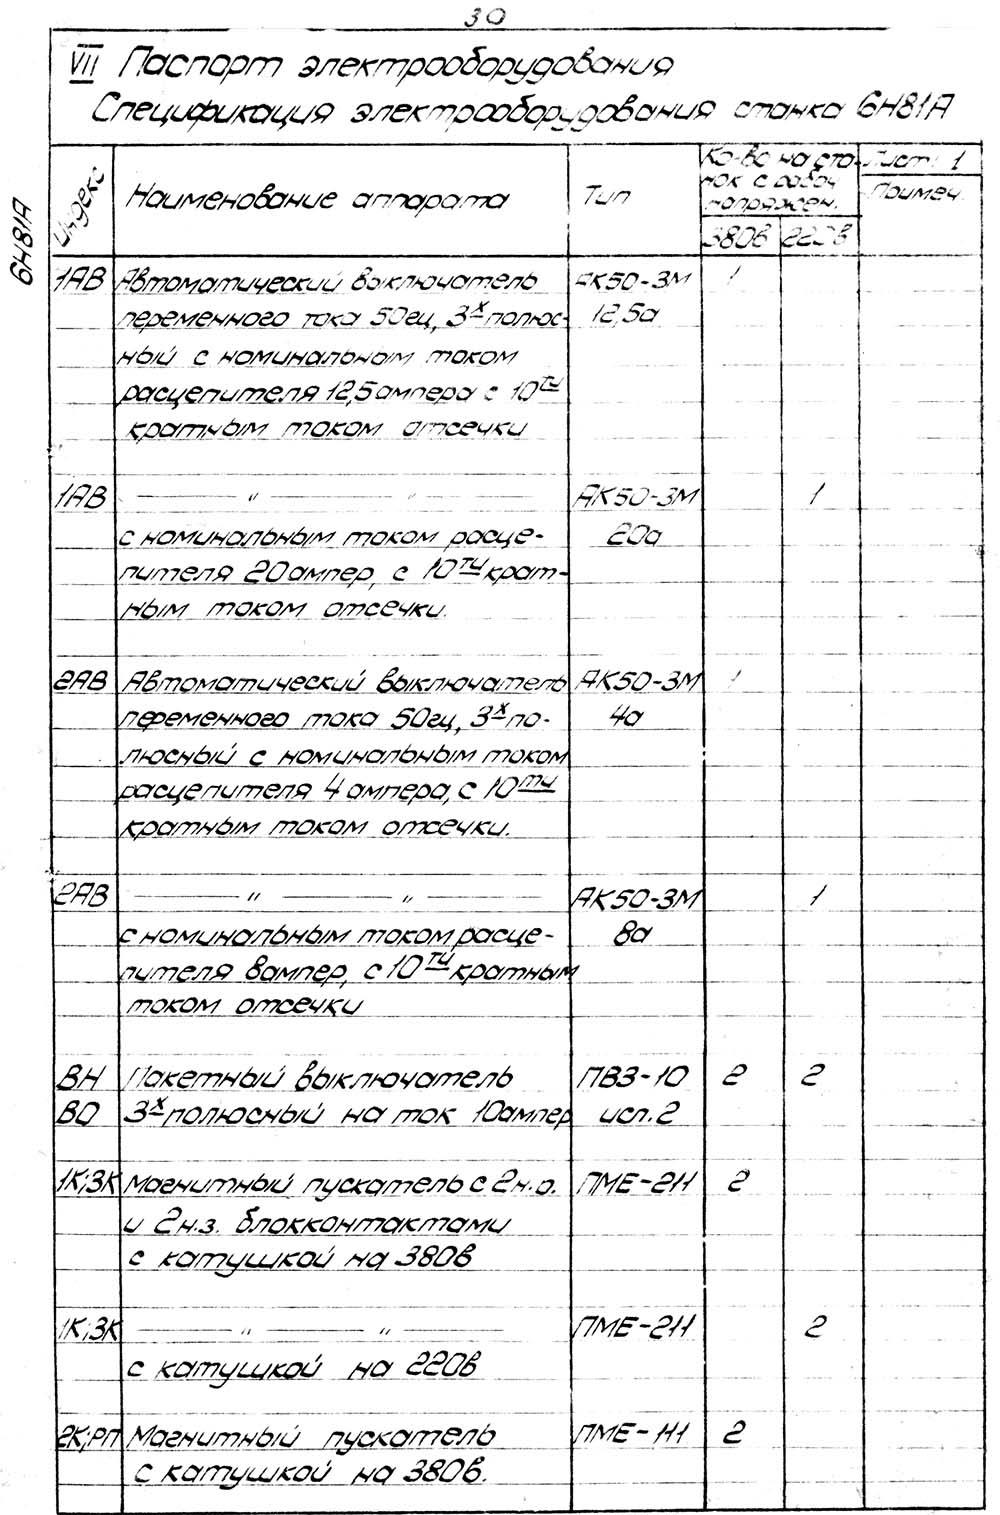 30
VII Паспорт электрооборудования
Спецификация электрооборудования станка 6Н81А
6Н81А
Индекс
Наименование аппарата
Тип
Ко-во на ста-
нок с рабоч
напряжен.
380в 220в
Лист: 1
Примеч.
1АВ Автоматический выключатель АК50-3М 1
переменного тока 50гц, 3х полюс- 12,5а
ный с номинальным током
расцепителя 12,5 ампера с 10ти
кратным током отсечки
1АВ — " — " — АК50-3М 1
с номинальным током расце- 20а
пителя 20 ампер, с 10ти крат-
ным током отсечки.
2АВ Автоматический выключатель АК50-3М 1
переменного тока 50гц, 3х по- 4а
люсный с номинальным током
расцепителя 4 ампера, с 10ти
кратным током отсечки.
2АВ — " — " — АК50-3М 1
с номинальным током расце- 8а
пителя 8ампер, с 10ти кратным
током отсечки
ВН Пакетный выключатель ПВЗ-10 2 2
ВО 3х полюсный на ток 10ампер исп.2
1К;3К Магнитный пускатель с 2н.о. ПМЕ-211 2
и 2н.з. блокконтактами
с катушкой на 380в
1К;3К — " — " — ПМЕ-211 2
с катушкой на 220в
2К;РП Магнитный пускатель ПМЕ-111 2
с катушкой на 380в.